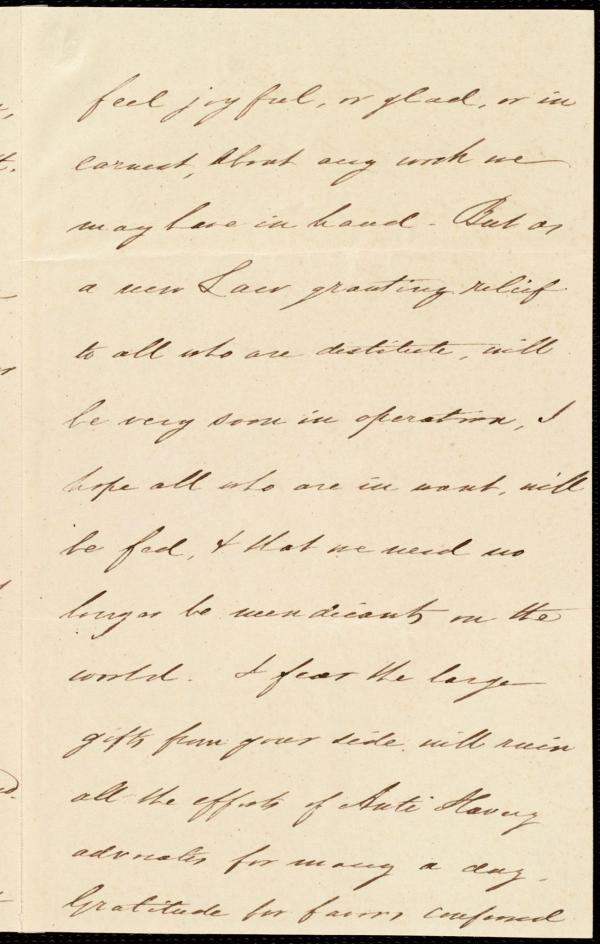 feel joyful, or glad, or in
earnest, about any work we
may have in hand - But as
a new Law granting relief
to all who are destitute, will
be very soon in operation, I
hope all who are in want, will
be fed, & that we need no
longer be mendicants on the
world. I fear the large
gifts from your side will ruin
all the efforts of Anti Slavery
advocates for many a day.
Gratitude for favors conferred